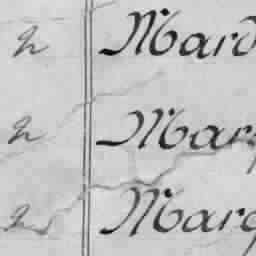 2 Mard
2 Marg
2 Marg